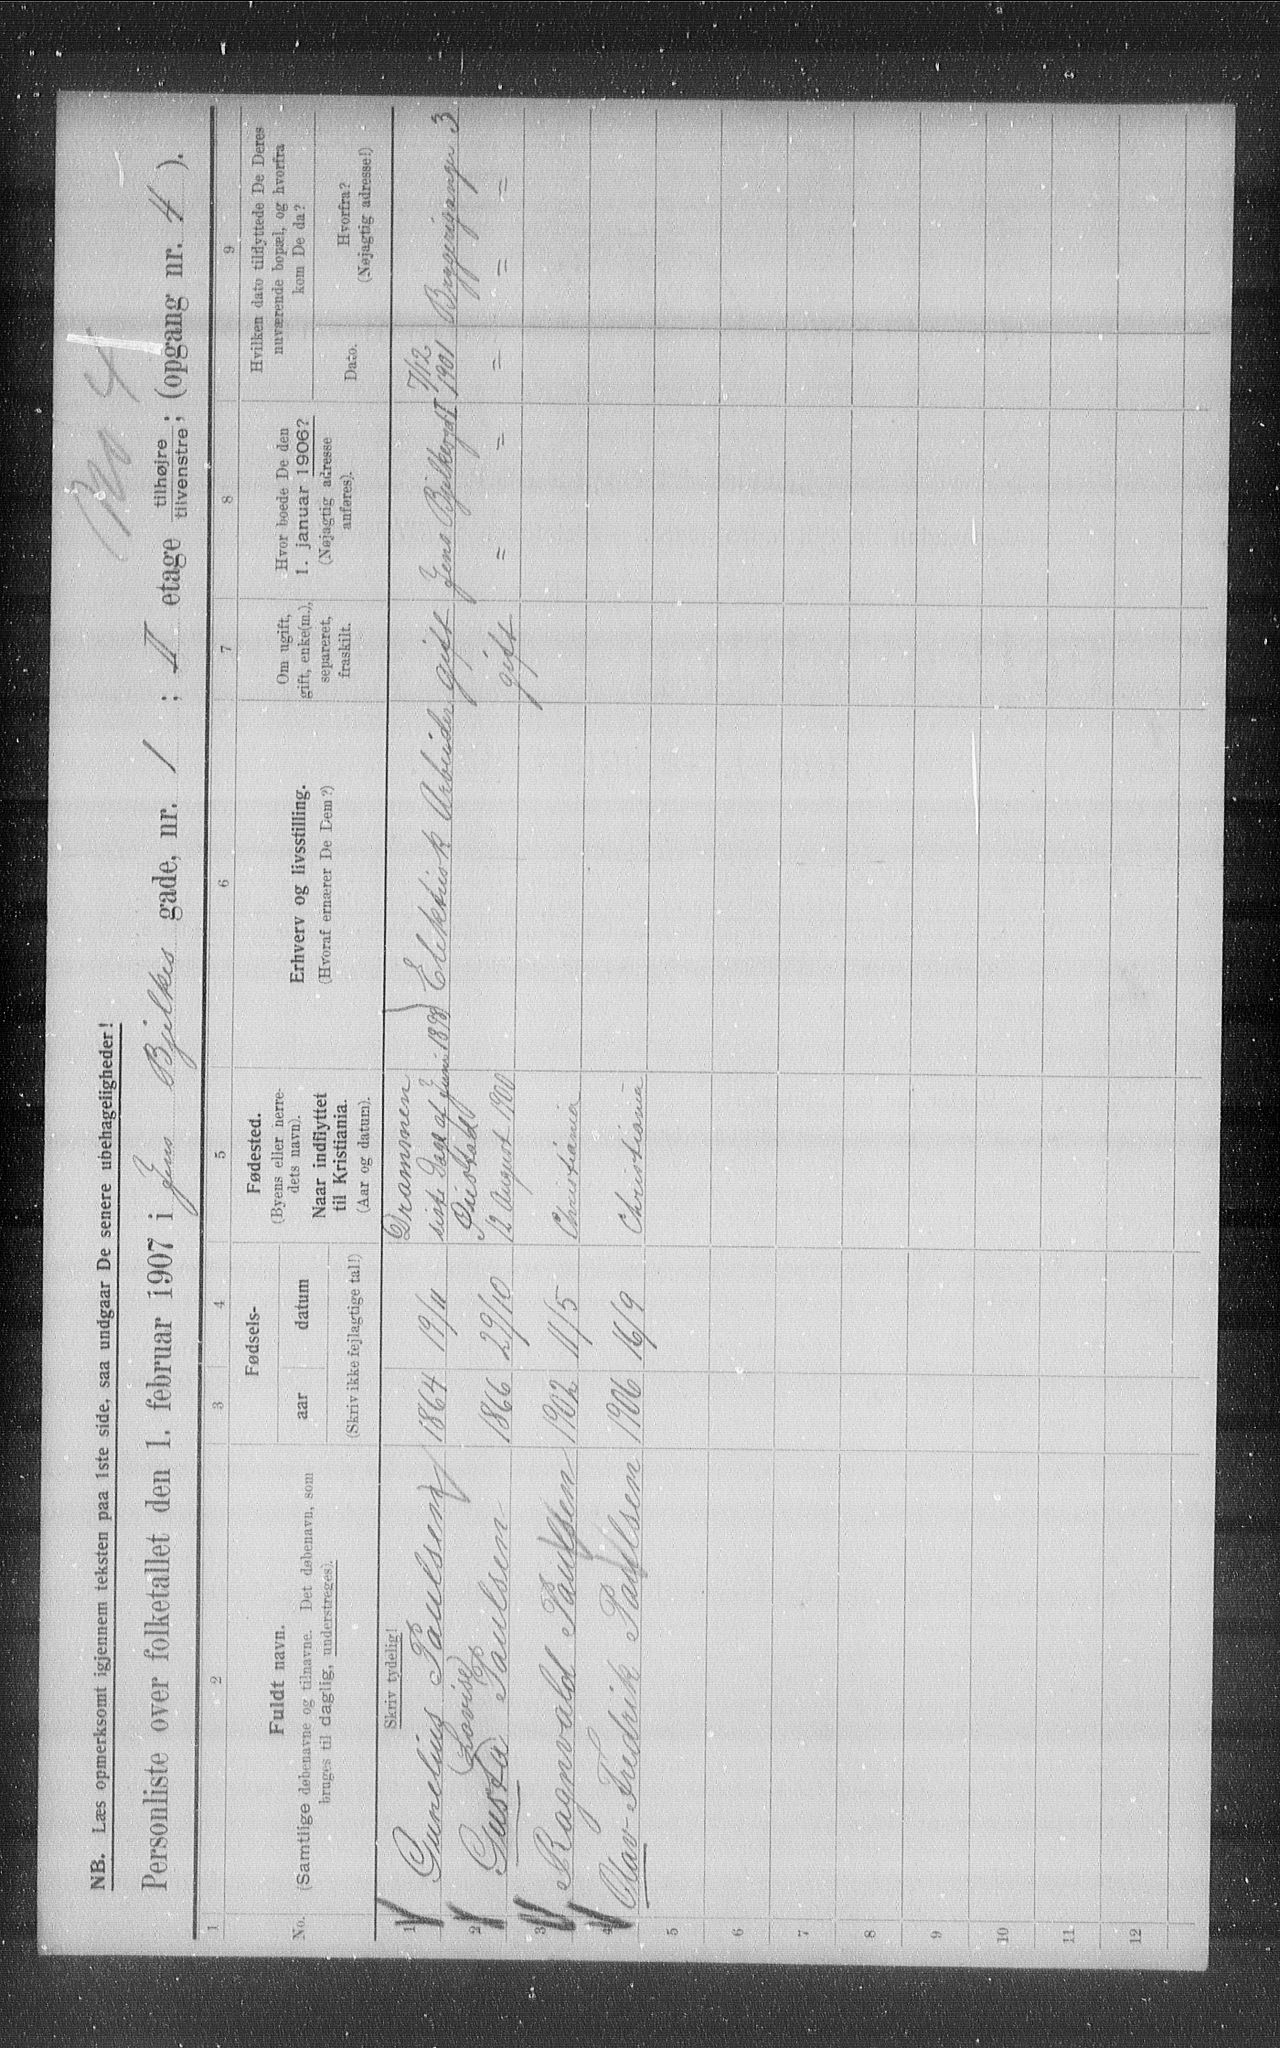 No 4
NB. Læs opmerksomt igjennem teksten paa 1ste side, saa undgaar De senere ubehageligheder!
Personliste over folketallet den 1. februar 1907 i Jens Bjelkes gade, nr. 1 ; II etage tilhøjre tilvenstre ; (opgang nr. 4 ).
1 2 3 4 5 6 7 8 9
No.
Fuldt navn.
(Samtlige døbenavne og tilnavne. Det døbenavn, som
bruges til daglig, understreges).
Fødsels-
aar datum
(Skriv ikke fejlagtige tal!)
Fødested.
(Byens eller herre-
dets navn).
Naar indflyttet
til Kristiania.
(Aar og datum).
Erhverv og livsstilling.
(Hvoraf ernærer De Dem?)
Om ugift,
gift, enke(m.),
separeret,
fraskilt.
Hvor boede De den
1. januar 1906?
(Nøjagtig adresse
anføres).
Hvilken dato tilflyttede De Deres
nuværende bopæl, og hvorfra
kom De da?
Dato.
Hvorfra?
(Nøjagtig adresse!)
Skriv tydelig!
1 Gunelius Paulsen 1864 19/11 Drammen
sidste Dage af Juni 1898 Elektrisk Arbeider gift Jens Bjelkesgd 1 7/12 1901 Bryggerigangen 3
2 Gusta (Lovise) Paulsen 1866 29/10
12 August 1900 gift = = = = =
3 Ragnvald Paulsen 1902 11/5 Christiania
4 Olav Fredrik Paulsen 1906 16/9 Christiania
5
6
7
8
9
10
11
12